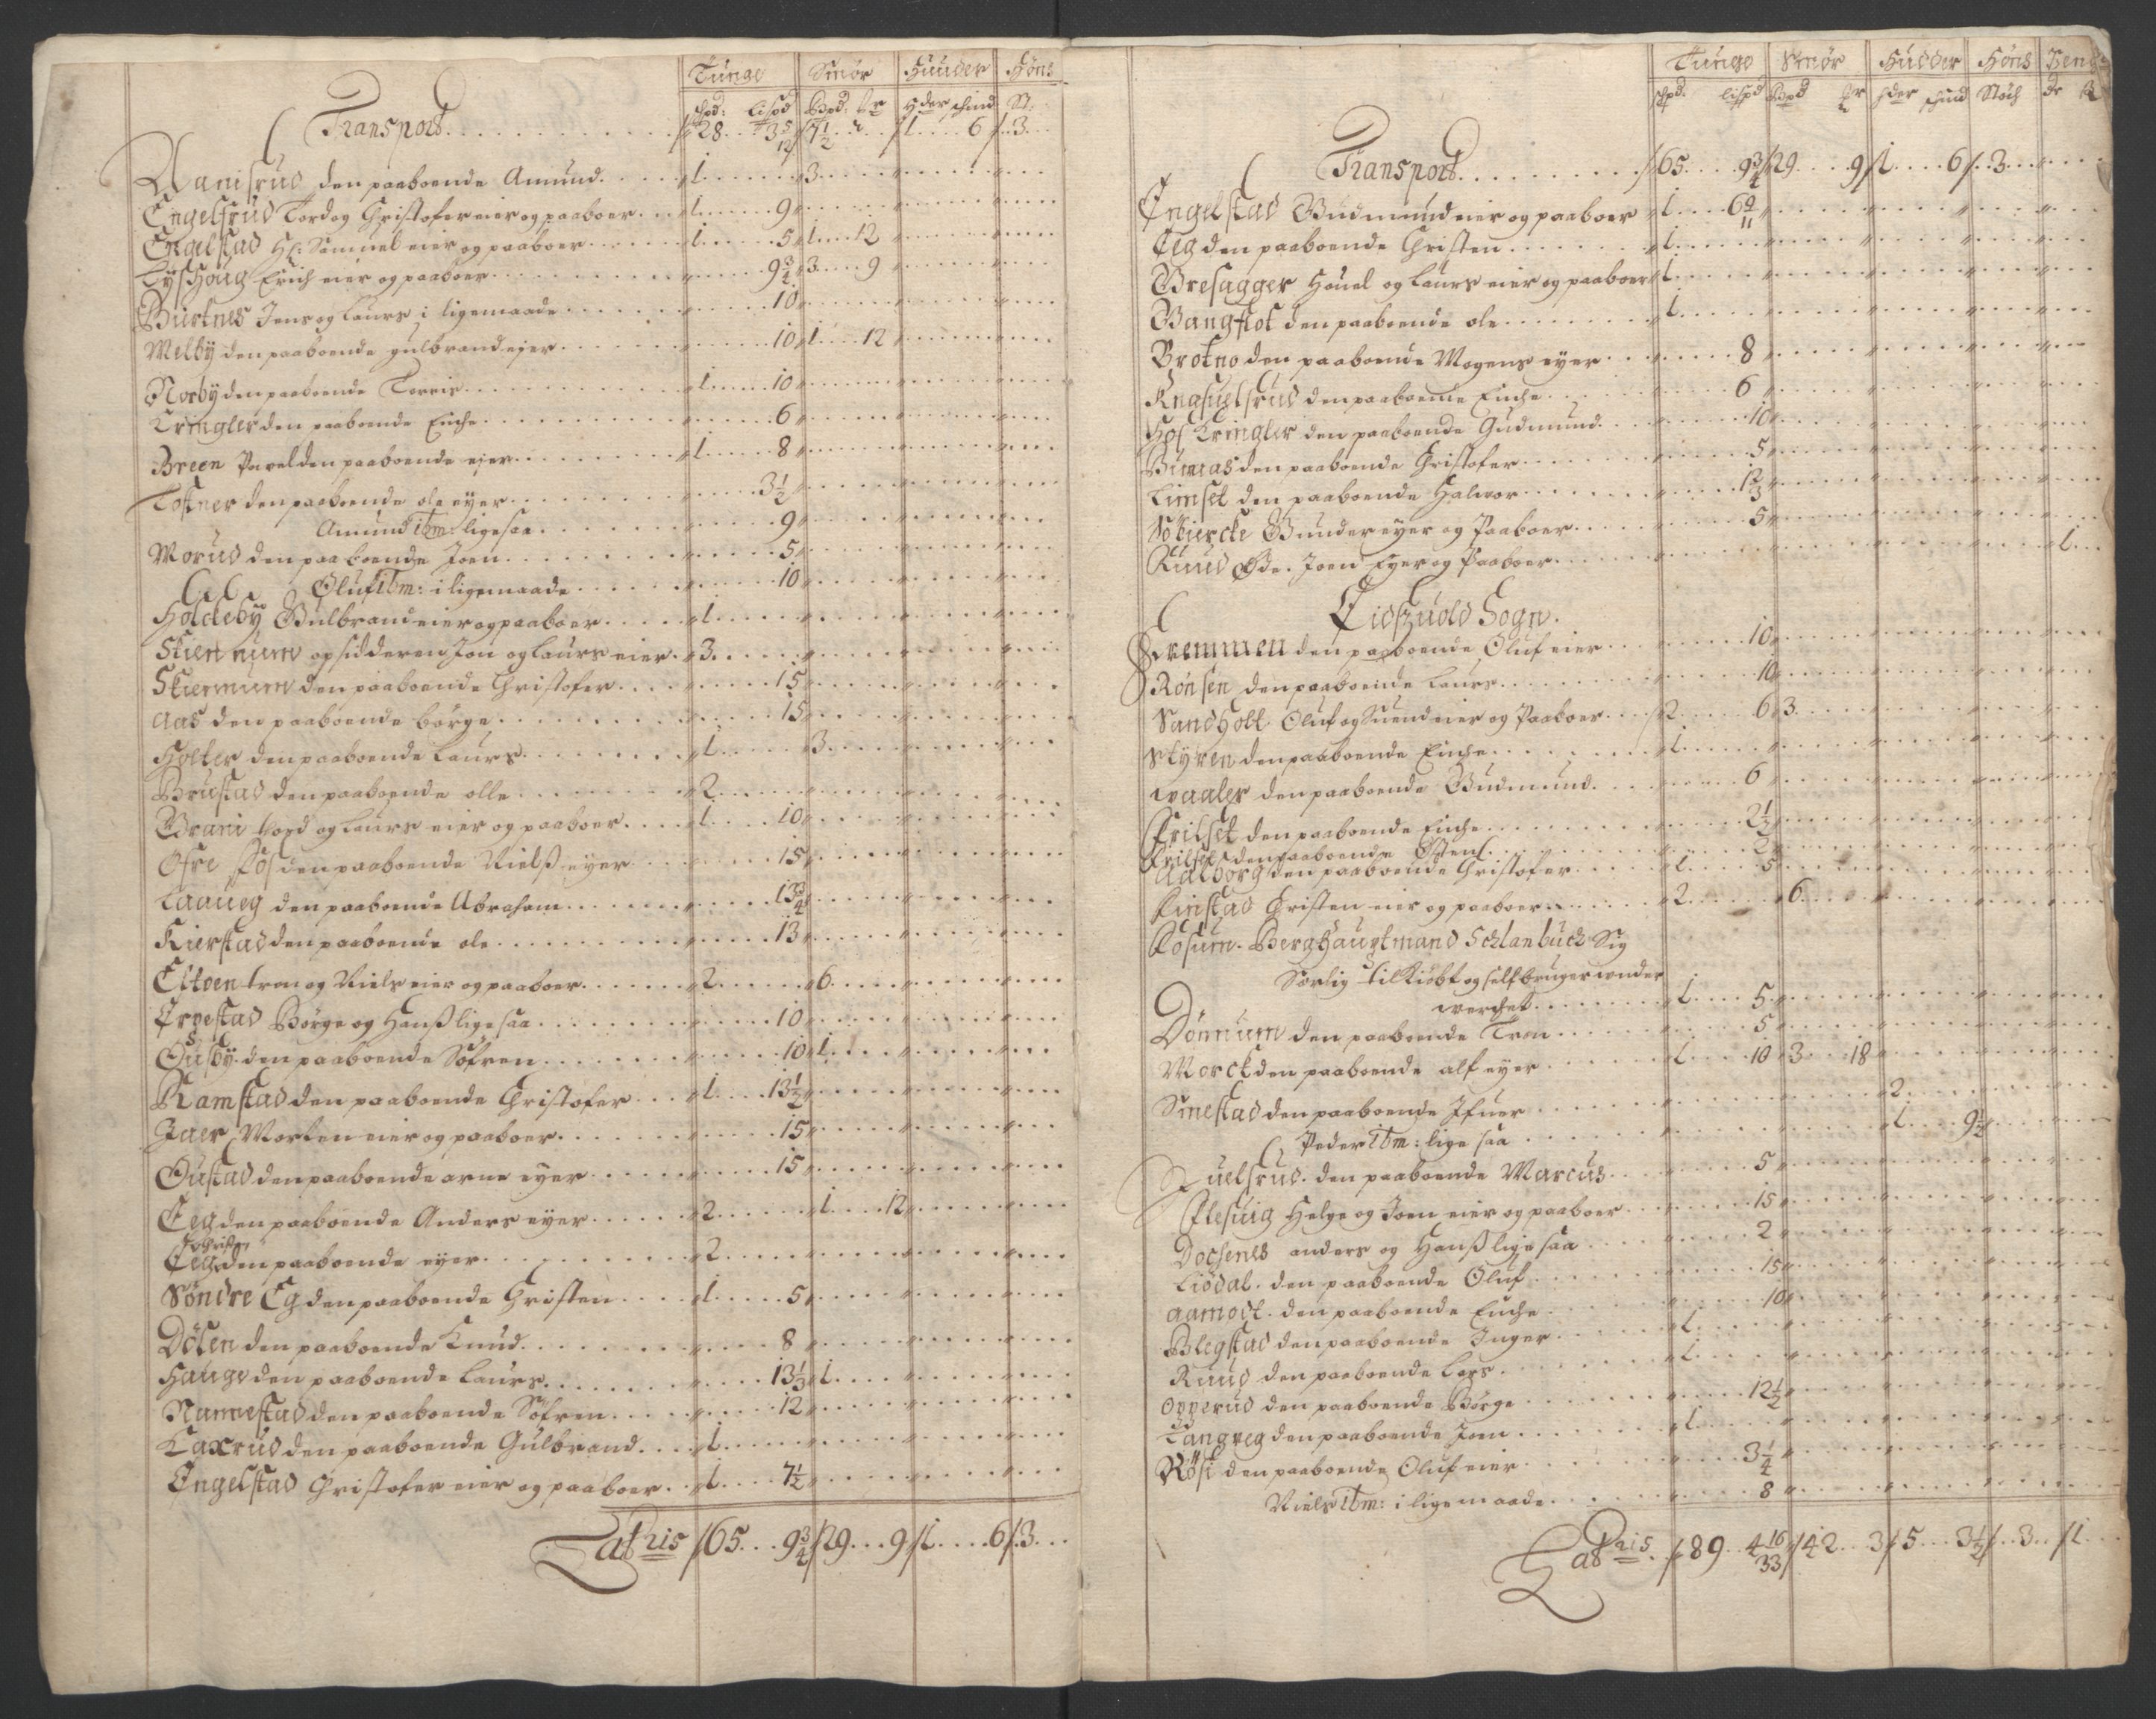 Tunge Smör Huuder Höns
schpd: Lispd Bpd: mr Hder schind St:
Transport 28 3 5/12 7 1/2 1 6 3
Aanisrud den paaboende Amund 1 3
Engelsrud Tord og Christofer eier og paaboer 1 9
Engelstad Hl: Samuel eier og paaboer 1 5 1 12
Lysshoug Erich eier og paaboer 9 3/4 3 9
Biertnes Jens og Laurs i ligemaade 10
Melby den paaboende gulbrand eier 10 1 12
Norby den paaboende Torris 1 10
Kringler den paaboende Enche 6
Breen Povel den paaboende ejer 1 8
Tostner den paaboende ole eyer 3 1/2
Amund ibm: lige saa 9
Morud den paaboende Joen 5
Oluf ibm: i ligemaade 10
Holckeby Gulbrand eier og paaboer 1
Skiennum opsidderen Jon og Laurs eier 3
Skiernum den paaboende Christofer 15
Aas den paaboende börge 15
Holter den paaboende Laurs 1 3
Brustad den paaboende olle 2
Brani Tord og Laurs eier og paaboer 1 10
Ofre Fos den paaboende Nielss eyer 15
Laaueg den paaboende Abraham 13 3/4
Kierstad den paaboende ole 13
Eltoen tron og Niels eier og paaboer 2 6
Ernestad Börge og Hanss lige saa 10
Ousby den paaboende Söfren 10 1
Ramstad den paaboende Christofer 1 13 1/2
Jaer Morten eier og paaboer 15
Oustad den paaboende arne eyer 15
Eeg den paaboende Anders eyer 2 1 12
Christen
Eeg den paaboende eyer 2
Söndre Eg den paaboende Christen 1 5
Dölen den paaboende Knud 8
Hauge den paaboende Laurs 13 1/3 1
Nannestad den paaboende Söfren 12
Laxrud den paaboende Gulbrand 1
Engelstad Christofer eier og paaboer 1 7 1/2
Latris 65 9 3/4 29 9 1 6 3
Tunge Smör Hudder Höns Penge
schpd. lispd Bpd mr hder schind Stöch dr
Transport 65 9 3/4 29 9 1 6 3
Engelstad Gudmund eier og paaboer 1 6 9/11
Eeg den paaboende Christen 1
Bresagger Houel og Laurs eier og paaboer 1
Bangflot den paaboende ole 1
Brotno den paaboende Mogens eyer 8
Engsuelsrud den paaboende Enche 6
Hos Kringler den paaboende Gudmund 10
Bunaas den paaboende Christofer 5
Limset den paaboende Halvor 1 2/3
Söbiercke Gunder eyer og Paaboer 5
Ruud Öde. Joen Eyer og Paaboer 1
Eidszuold Sogn.
Fremmen den paaboende Oluf eier 10
Rönsen den paaboende Laurs 10
Sandholt Oluf og Suend eier og Paaboer 2 6 3
Styren den paaboende Enche 1
waaler den paaboende Gudmund 6
Frilset den paaboende Enche 2 1/2
Frilset den paaboende Östen 2
Aalborg den paaboende Christofer 1 5
Finstad Christen eier og paaboer 2 6
Fosum. Berghauptmand Schlanbuch Sig
Sserlig tilkiöbt og self bruger under
werchet 1 5
Dönnum den paaboende Tron 5
Morck den paaboende alf eyer 1 10 3 18
Smestad den paaboende Jfuer 2
Peder ibm: lige saa 1 9 1/2
uelsrud. den paaboende Marcus 5
Flesuig Helge og Joen eier og paaboer 15
Docsenes anders og Hanss lige saa 2
Liödal. den paaboende Oluf 15
aamodt. den paaboende Enche 10
Blegstad den paaboende Inger 1
Ruud den paaboende Lars 1
Opperud den paaboende Börge 12 1/2
Langreg den paaboende Joen 1
Rösi den paaboende Oluf eier 3 1/4
Niels ibm: i ligemaade 8
Latris. 89 4 16/33 42 3 5 3 1/2 3 1